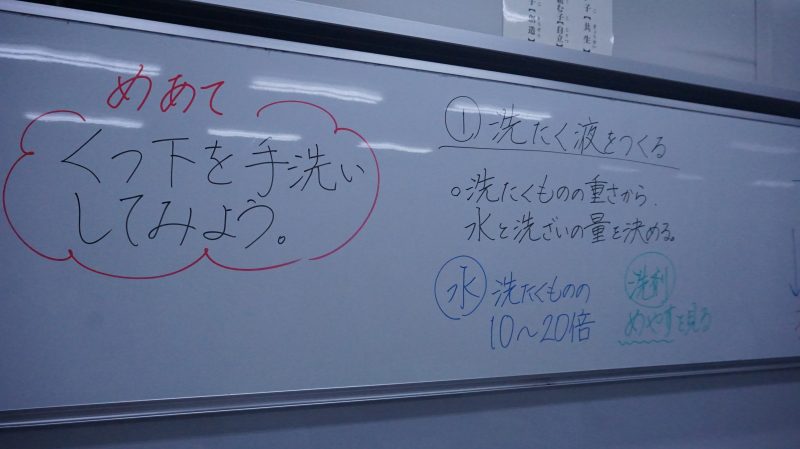 めあて
くつ下を手洗い
してみよう。
① 洗たく液をつくる
○洗たくものの重さから、
水と洗ざいの量を決める。
水 洗たくものの
10〜20倍
洗剤
めやすを見る